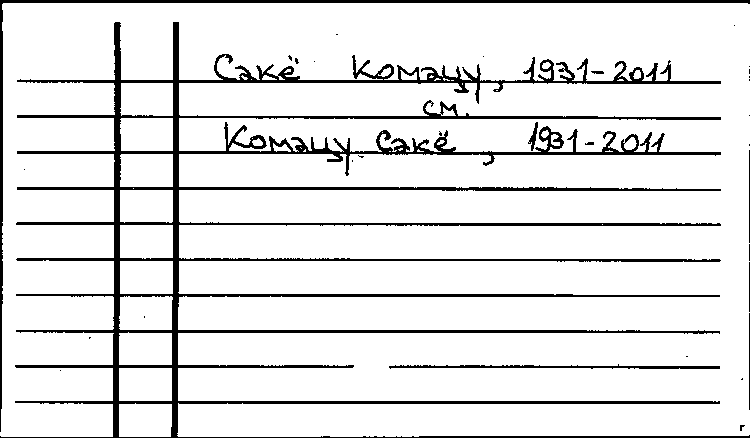 Сакё Комацу, 1931-2011
см.
Комацу Сакё, 1931-2011